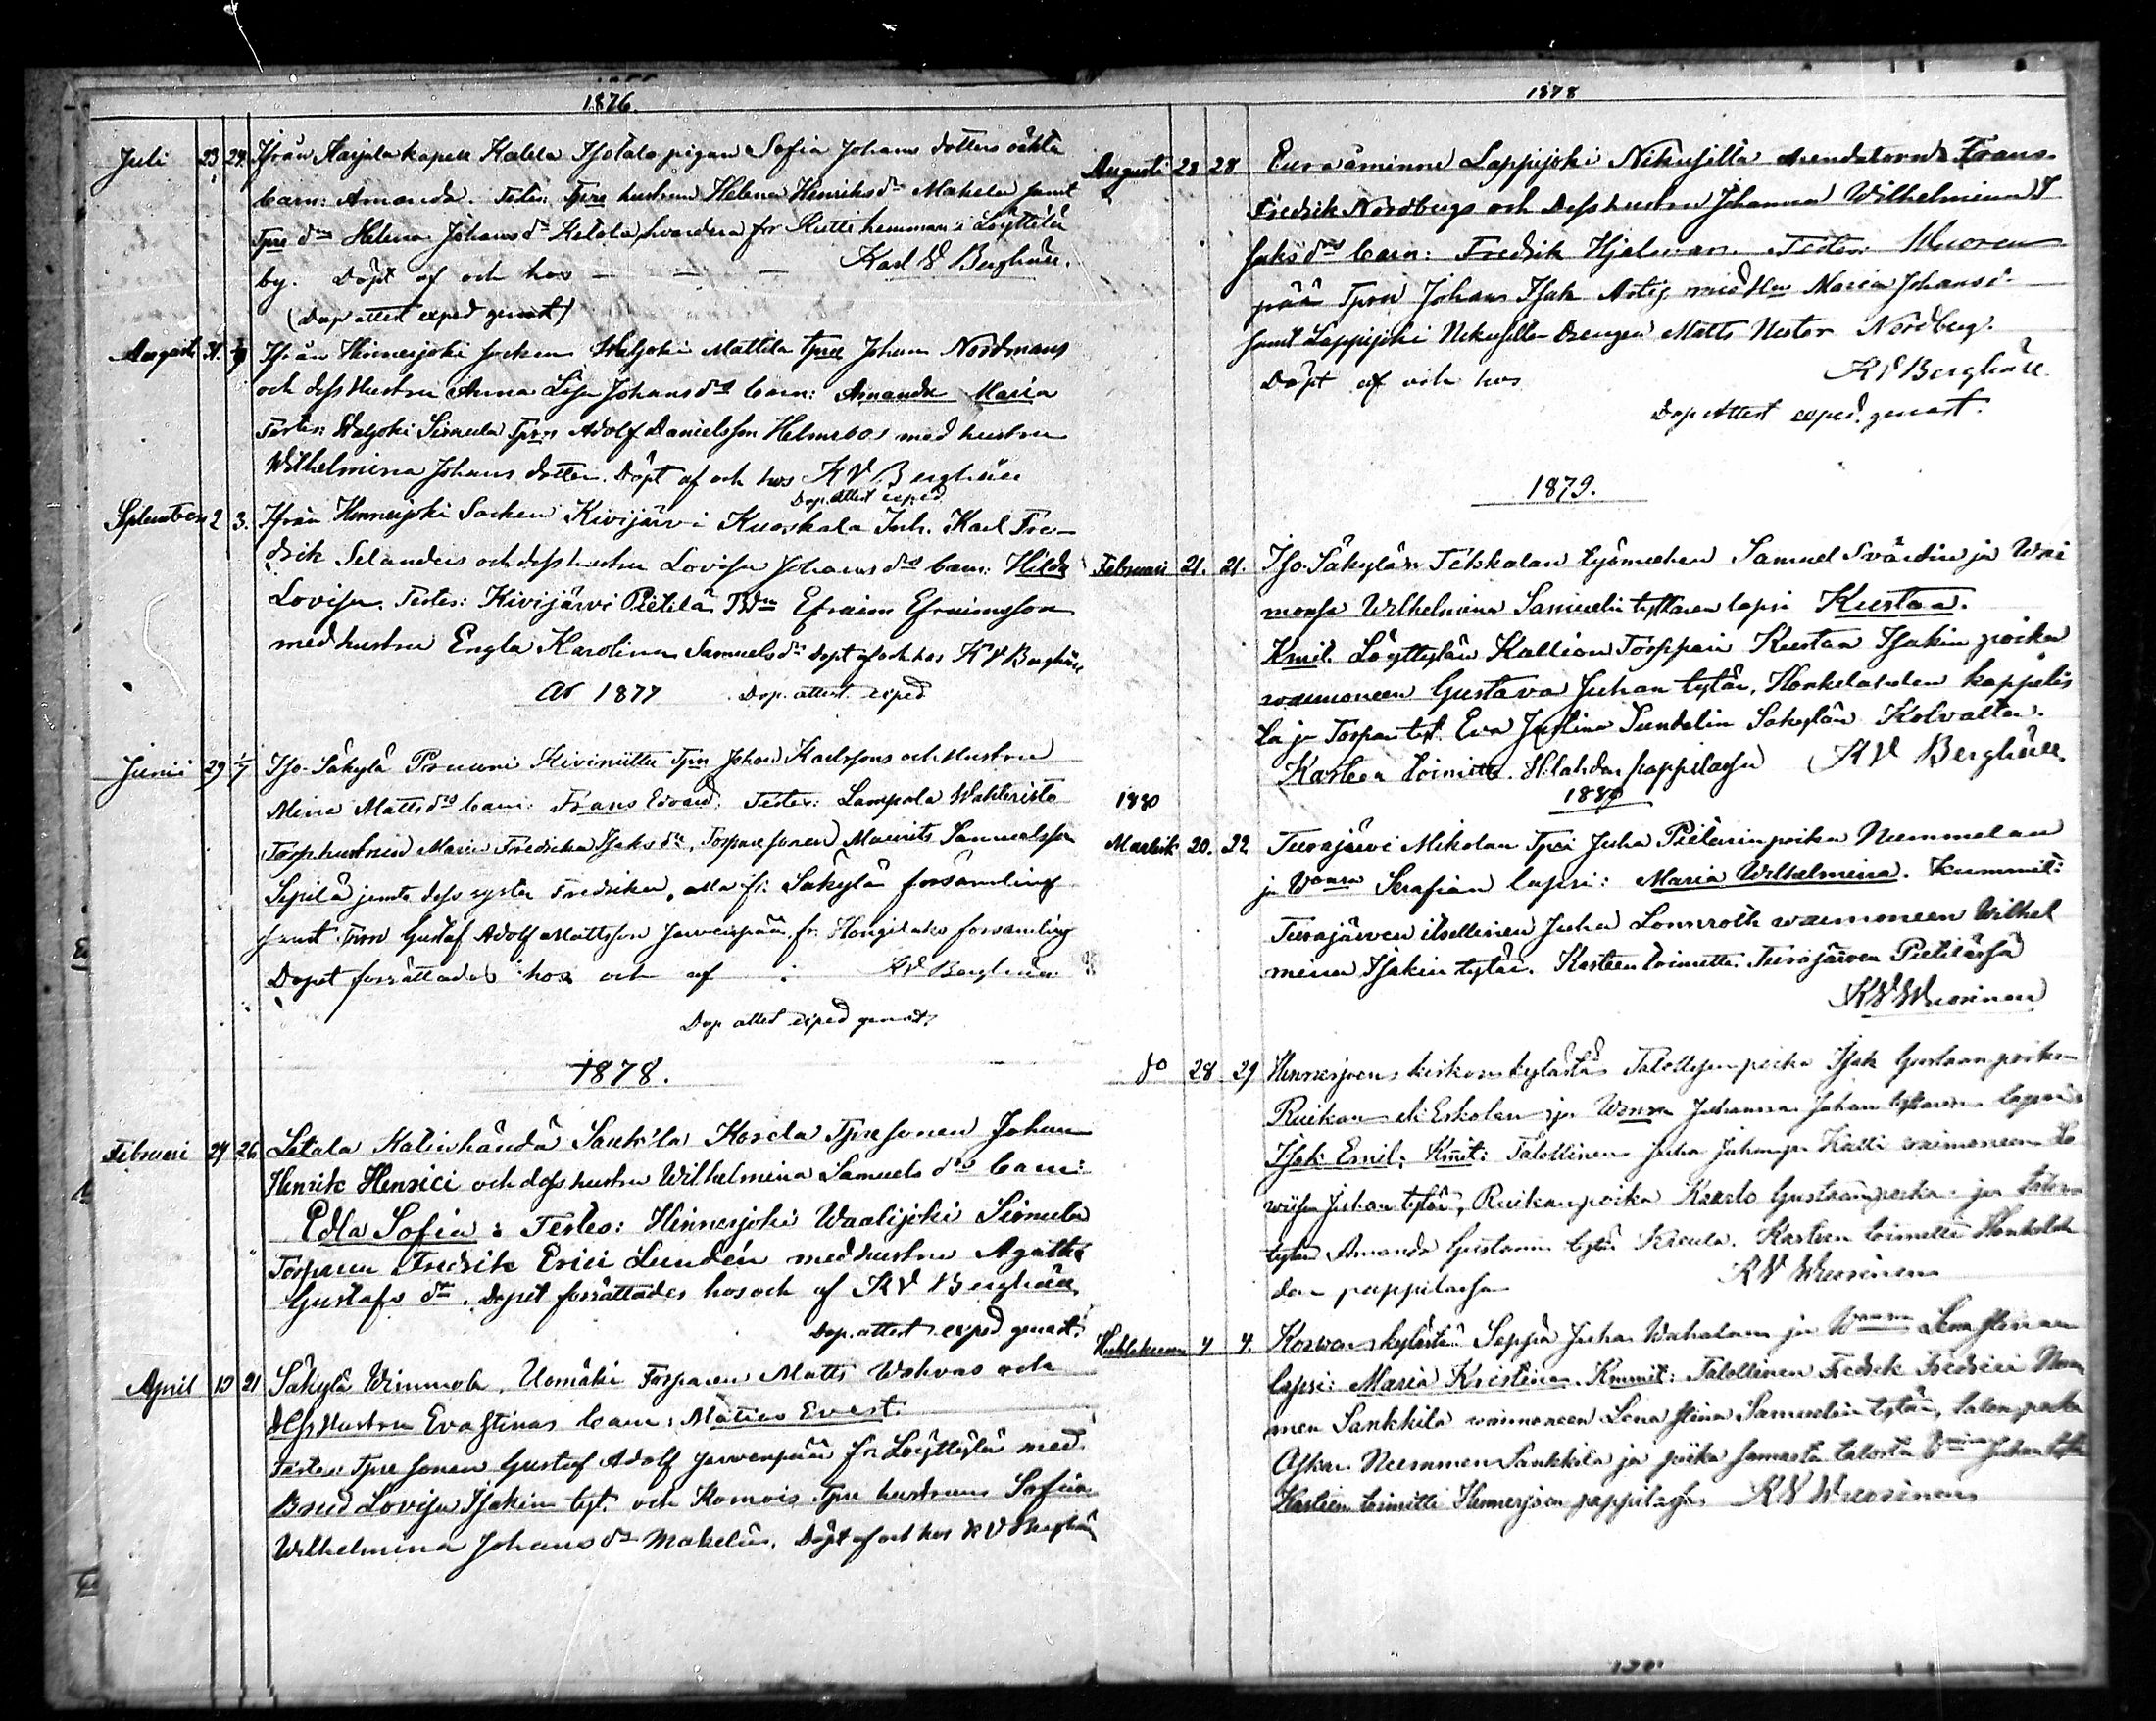 1876.
Juli 23 24. Ifrån Karjala kapell Kalela Isotalo pigan Sofia Johans dotters oäkta
barn: Amanda. Testes: Tpre hustrun Helena Henriksdr Makela samt
Tpre dr Helena Johansdr Ketola, hvardera fr Kutti hemman i Löyttilä
by. Döpt af och hos — — — Karl W Berghäll.
(Dop attest exped genast)
Augusti 31. Ifrån Hinnerjoki socken Waljoki Mattila Tpre Johan Nordmans
och dess hustru Anna Lisa Johansdrs barn: Amanda Maria
Testes: Waljoki Simula Tprn Adolf Danielsson Helmroos med hustru
Wilhelmina Johans dotter. Döpt af och hos K V Berghäll
Dop. attest exped
September 2 3. Ifrån Hinnerjoki Socken Kivijärvi Kuoskala Inh. Karl Fre-
drik Selanders och dess hustru Lovisa Johans drs barn: Hilda
Lovisa. Testes: Kivijärvi Pietilä Bdn Efraim Efraimsson
med hustru Engla Karolina Samuelsdr döpt af och hos K V Berghäll
År 1877 Dop. attest exped
Junii 29 1/7 Iso-Säkylä Pruuni Kiviniitty Tprn Johan Karlssons och hustru
Mina Mattsdrs barn: Frans Edvard. Testes: Lampola Wahteristo
Torp hustrun Maria Fredrika Isaksdr, Torpare sonen Maurits Samuelsson
Sepilä jemte dess syster Fredrika, alla fr. Säkylä församling
samt Tprn Gustaf Adolf Mattsson Jarvenpää fr. Hongilaks församling
Dopet förrättades hos och af : K V Berghäll
Dop attest exped genast.
1878.
Februari 24 26 Letala Kalinhändä Sankila Korela Tpre sonen Johan
Henrik Henrici och dess hustru Wilhelmina Samuels drs barn:
Edla Sofia: Testes: Hinnerjoki Waalijoki Simula
Torparen Fredrik Erici Lundén med hustru Agatha
Gustafs dr. Dopet förrättades hos och af K V Berghäll
Dop. attest exped genast.
April 10 21 Säkylä Winnola, Uomäki Torparen Matts Wahvas och
dess hustru Eva Stinas barn: Matias Evert.
Testes Tpre sonen Gustaf Adolf Jarvenpää fr Löyttylä med
Brud Lovisa Isakin tyt. och Komois Tpre hustrun Sofia
Wilhelmina Johansdr Makelä. Döpt af och hos K V Berghäll
1878
Augusti 28 28 Euraåminne Lappijoki Nikusilla Arendatorns Frans
Fredrik Nordbergs och Dess hustru Johanna Wilhelmina I
saksdrs barn: Fredrik Hjalmar. Testes: Wuoren
pää Tprn Johan Isak Artig med Hu Maria Johansd.
samt Lappijoki Nikusilla Drengen Matts Nestor Nordberg.
Döpt af och hos K V Berghäll
Dop Attest exped. genast.
1879.
Februari 21. 21. Iso-Säkylän Tékkalan työmiehen Samuel Svärdin ja Wai
monsa Wilhelmina Samuelin tyttären lapsi Kustaa.
Kmit. Löyttylän Kallion Torppari Kustaa Isakin poika
waimoneen Gustava Juhan tytär, Honkilahden kappelis
ta ja Torpan tyt. Eva Justina Sundelin Säkylän Kolvalta.
Kasteen toimitti. H:lahden pappilassa K V Berghäll
1880
1880
Martink 20. 22 Turajärvi Mikolan Tpri Juha Pietarin poika Nummelan
ja Wmonsa Serafian lapsi: Maria Wilhelmina. Kummit:
Turajärven itsellinen Juha Lönnroth waimoneen Wilhel
mina Isakin tytär. Kasteen toimitti. Turajärven Pietilässä
K W Wuorinen
do 28 29 Hinnerjoen kirkon kylästä Talollisen poika Isak Gustaan poika
Ruikan eli Eskolan ja Wmonsa Juhanna Juhan tyttären lapsi
Isak Emil. Kmit: Talollinen Juha Juhanp. Katti waimoneen Lo
wiisa Juhan tytär, Ruikan poika Kaarlo Gustaan poika ja talon
tytär Amanda Gustaan tytär Kieula. Kasteen toimitti Honkilah
den pappilassa K W Wuorinen
Huhtikuun 4 4. Korvan kylästä Seppä Juha Wahalan ja Wmonsa Lena Stinan
lapsi: Maria Kristina. Kmmit: Talollinen Fredrik Fredrici Num
men Sankkila waimoneen Lena Stina Samuelin tytär, talon poika
Oskar Nummen Sankkila ja piika samasta talosta Juhan tytär
Kasteen toimitti Hinnerjoen pappilassa. K W Wuorinen